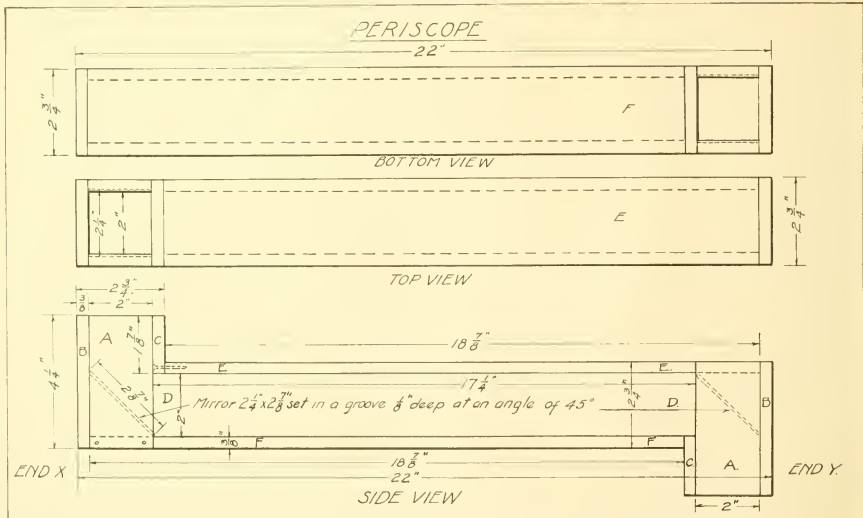 PERISCOPE
22"
2 3/4"
F
BOTTOM VIEW
2 1/4"
2"
E
2 3/4"
TOP VIEW
2 3/4"
3/8
2"
A
C
1 7/8"
18 7/8"
B
4 1/4"
E
E
17 1/4"
2 7/8"
D
2"
2 3/4"
D
B
Mirror 2 1/4" x 2 7/8" set in a groove 1/8" deep at an angle of 45°
3/8"
F
F
END X
18 7/8"
C
A.
END Y.
22"
2"
SIDE VIEW